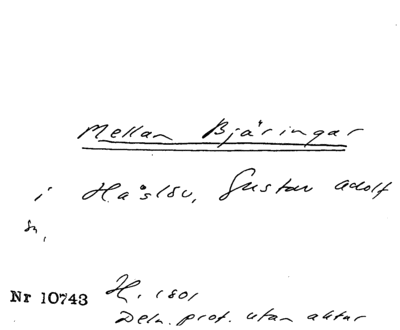 Mellan Bjäringar
i Håslöv, Gustav Adolf
sn,
Nr 10743 H. 1801
Deln. prot. utan aktar